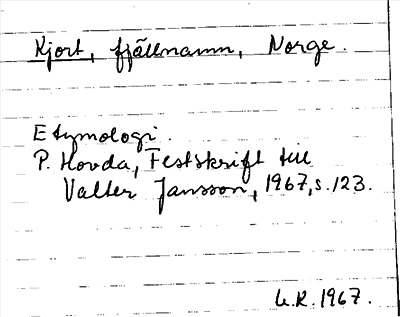 Kjort, fjällnamn, Norge.
Etymologi.
P. Hovda, Festskrift till
Valter Jansson, 1967, s. 123.
U.R. 1967.